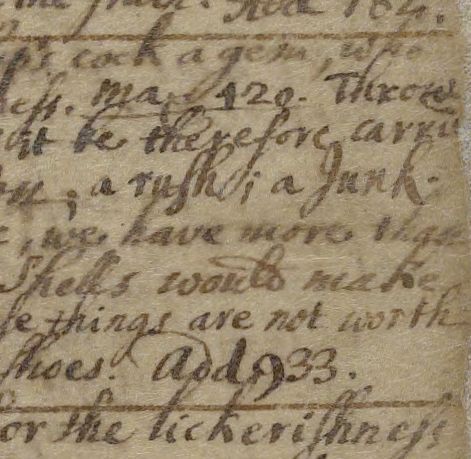 the
's cock a gem, who
ess. ma. 420. Throw
it be therefore carri
a rush; a Junk
, we have more than
shells would make
se things are not worth
shoes. Add. 933.
or the lickerishness